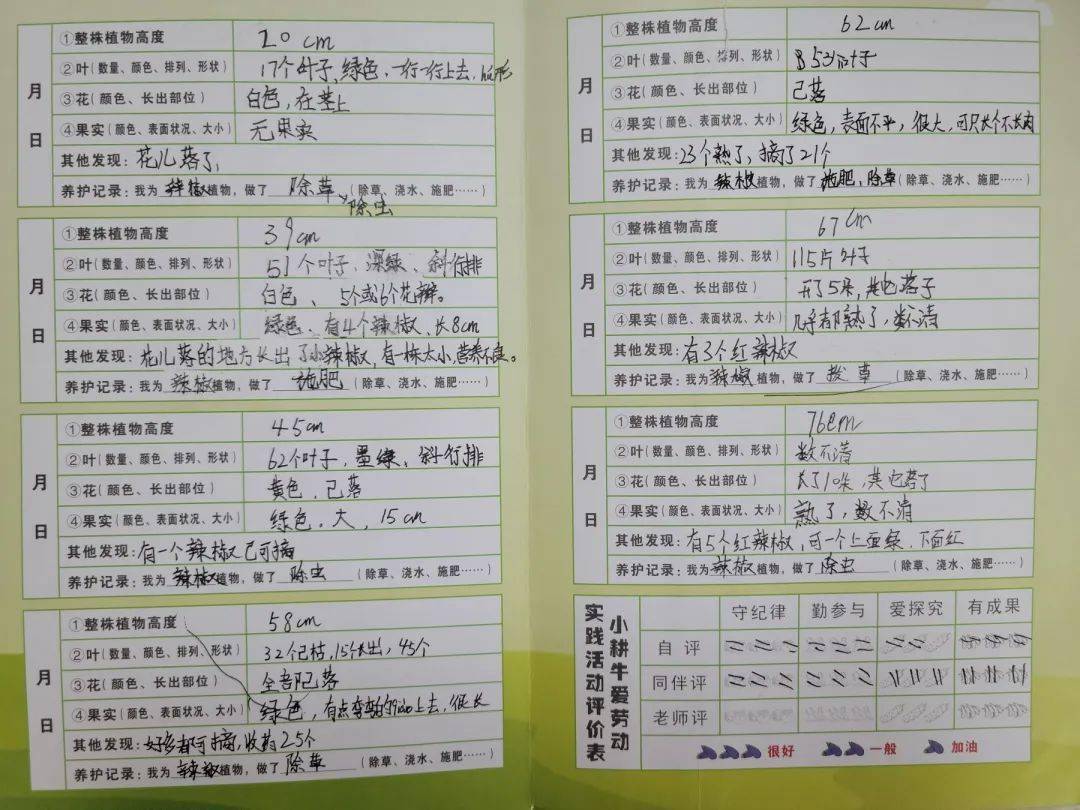 月 日
①整株植物高度 20cm
②叶(数量、颜色、排列、形状) 17个叶子,绿色,一行一行上去,
③花(颜色、长出部位) 白色,在茎上
④果实(颜色、表面状况、大小) 无果实
其他发现:花儿落了,
养护记录:我为 辣椒 植物,做了 除草、除虫 (除草、浇水、施肥……)
月 日
①整株植物高度 39cm
②叶(数量、颜色、排列、形状) 51个叶子、深绿、斜行排
③花(颜色、长出部位) 白色、5个或6个花瓣。
④果实(颜色、表面状况、大小) 绿色、有4个辣椒、长8cm
其他发现:花儿落的地方长出了小辣椒,有一株太小,营养不良。
养护记录:我为 辣椒 植物,做了 施肥 (除草、浇水、施肥……)
月 日
①整株植物高度 45cm
②叶(数量、颜色、排列、形状) 62个叶子,墨绿、斜行排
③花(颜色、长出部位) 黄色,已落
④果实(颜色、表面状况、大小) 绿色,大,15cm
其他发现:有一个辣椒已可摘
养护记录:我为 辣椒 植物,做了 除虫 (除草、浇水、施肥……)
月 日
①整株植物高度 58cm
②叶(数量、颜色、排列、形状) 32个已枯,15个长出,45个
③花(颜色、长出部位) 全部已落
④果实(颜色、表面状况、大小) 绿色,有点弯 上去,很长
其他发现:好多都可摘,收获25个
养护记录:我为 辣椒 植物,做了 除草 (除草、浇水、施肥……)
月 日
①整株植物高度 62cm
②叶(数量、颜色、排列、形状) 85 叶子
③花(颜色、长出部位) 已落
④果实(颜色、表面状况、大小) 绿色,表面不平,很大,可只长个不长肉
其他发现:23个熟了,摘了21个
养护记录:我为 辣椒 植物,做了 施肥,除草 (除草、浇水、施肥……)
月 日
①整株植物高度 67cm
②叶(数量、颜色、排列、形状) 115片叶子
③花(颜色、长出部位) 开了5朵,其它落了
④果实(颜色、表面状况、大小) 几乎都熟了,数不清
其他发现:有3个红辣椒
养护记录:我为 辣椒 植物,做了 拔草 (除草、浇水、施肥……)
月 日
①整株植物高度 76cm
②叶(数量、颜色、排列、形状) 数不清
③花(颜色、长出部位) 长了10朵,其它落了
④果实(颜色、表面状况、大小) 熟了,数不清
其他发现:有5个红辣椒,可一个上面绿,下面红
养护记录:我为 辣椒 植物,做了 除虫 (除草、浇水、施肥……)
小耕牛爱劳动
实践活动评价表
守纪律 勤参与 爱探究 有成果
自评
同伴评
老师评
很好 一般 加油